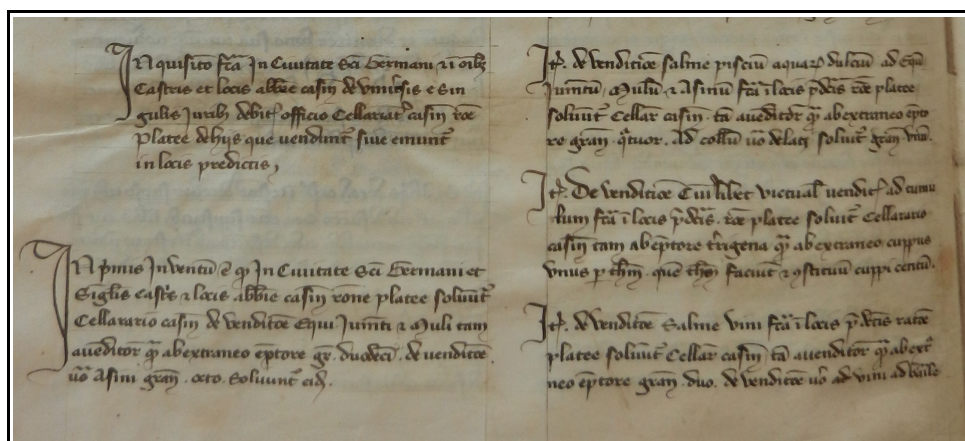 Inquisito fcã In Ciuitate Sci Germani ⁊ ĩ oĩbȝ
Castris et locis abbĩe casiñ de vniũsis e Sin
gulis Iuribȝ debit offıcio Cellariat casiñ rõe
Platee de hijs que vendunt̃ siue emunt̃
in locis predictis,
In p̃mis Inuentũ ẽ ꝙ In Ciuitate Sci Germani et
Singlis Castris ⁊ locis abbĩe casiñ rone platee soluũt̃
Cellarario casiñ de venditõe Equi Iumẽti ⁊ Muli tam
auẽditor q̃ ab extraneo ẽptore gr̃. duodecĩ. de venditõe
uõ Asini grañ. octo. Soluunt̃ eid̃.
It̃. de venditiõe salme pisciũ aquarꝝ dulciũ ad Equũ
Iumẽtũ. Mulũ ⁊ Asinũ fcã ĩ locis p̃dcis rõe platee
soluũt̃ Cellar casiñ. tã auẽditor q̃ ab extraneo ẽpto
re grañ. q̃tuor. Ad collũ uõ delat soluit̃ grañ vnũ.
It̃. De venditiõe Cuiuslibet victual vendit ad tumu
lum fcã ĩ locis p̃dcis. rõe platee soluit̃ Cellarario
casiñ tam ab ẽptore t̃rigena q̃ ab extraneo cuppus
vnus p thm̃. que thm̃ faciũt ⁊ ꝯstituũt cuppi centũ.
It̃. de venditõe Salme vini fcã ĩ locis p̃dcis ratõe
platee soluũt̃ Cellar casiñ tã auenditor q̃ ab extª
neo ẽptore grañ. duo. de venditõe uõ ad vini ad barile